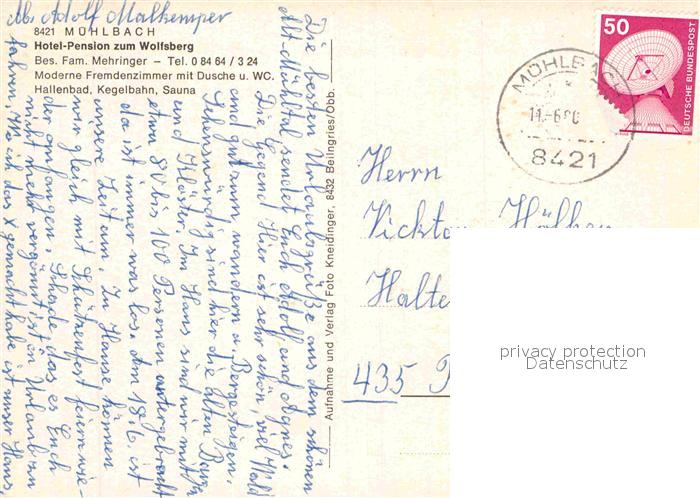 Abs. Adolf Malkemper
8421 MÜHLBACH
Hotel-Pension zum Wolfsberg
Bes. Fam. Mehringer – Tel. 0 84 64 / 3 24
Moderne Fremdenzimmer mit Dusche u. WC.
Hallenbad, Kegelbahn, Sauna
Die besten Urlaubsgrüße aus dem schönen
Alt-Mühltal sendet Euch Adolf und Agnes.
Die Gegend Hier ist sehr schön, viel Wald
und gut zum wandern u. Bergsteigen,
Sehenswürdig sind hier die alten
und Klöster. Im Haus sind wir mit
etwa 80 bis 100 Personen untergebracht
da ist immer was los. Am 18.6. ist
unsere Zeit um. In Hause können
wir gleich mit Schützenfest feiern wie-
der anfangen. Schade, das es Euch
nicht mehr vergönnt ist in Urlaub zu
fahren. Wo ich das X gemacht habe ist unser Haus
Aufnahme und Verlag Foto Kneidinger, 8432 Beilngries/Obb.
50
DEUTSCHE BUNDESPOST
MÜHLBACH
11.-6.80
8421
Herrn
Halte
435
privacy protection
Datenschutz